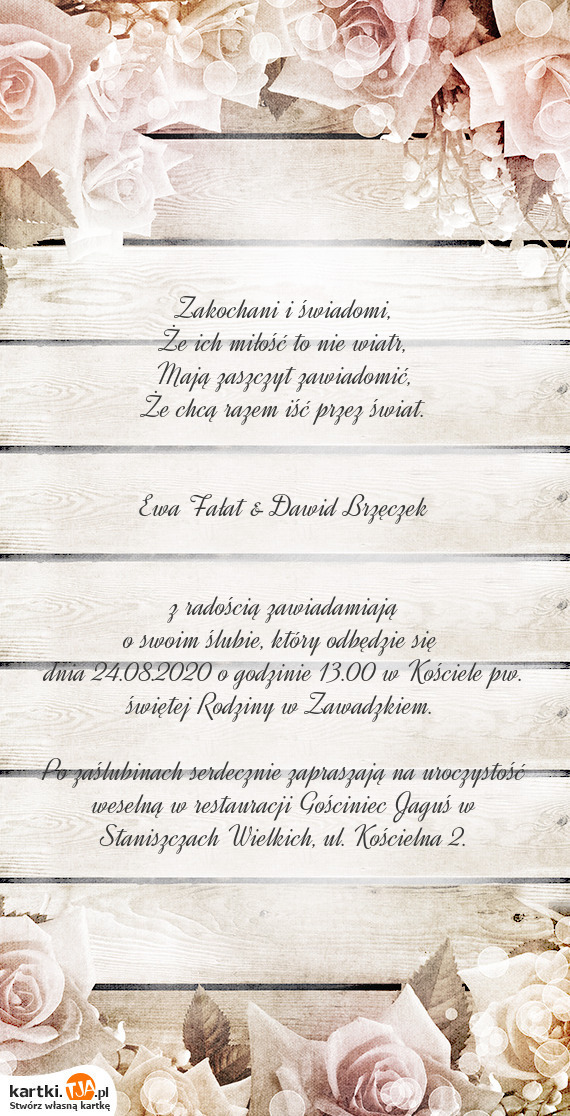 Zakochani i świadomi,
Że ich miłość to nie wiatr,
Mają zaszczyt zawiadomić,
Że chcą razem iść przez świat.
Ewa Fałat & Dawid Brzęczek
z radością zawiadamiają
o swoim ślubie, który odbędzie się
dnia 24.08.2020 o godzinie 13.00 w Kościele pw.
świętej Rodziny w Zawadzkiem.
Po zaślubinach serdecznie zapraszają na uroczystość
weselną w restauracji Gościniec Jaguś w
Staniszczach Wielkich, ul. Kościelna 2.
kartki.TJA.pl
Stwórz własną kartkę